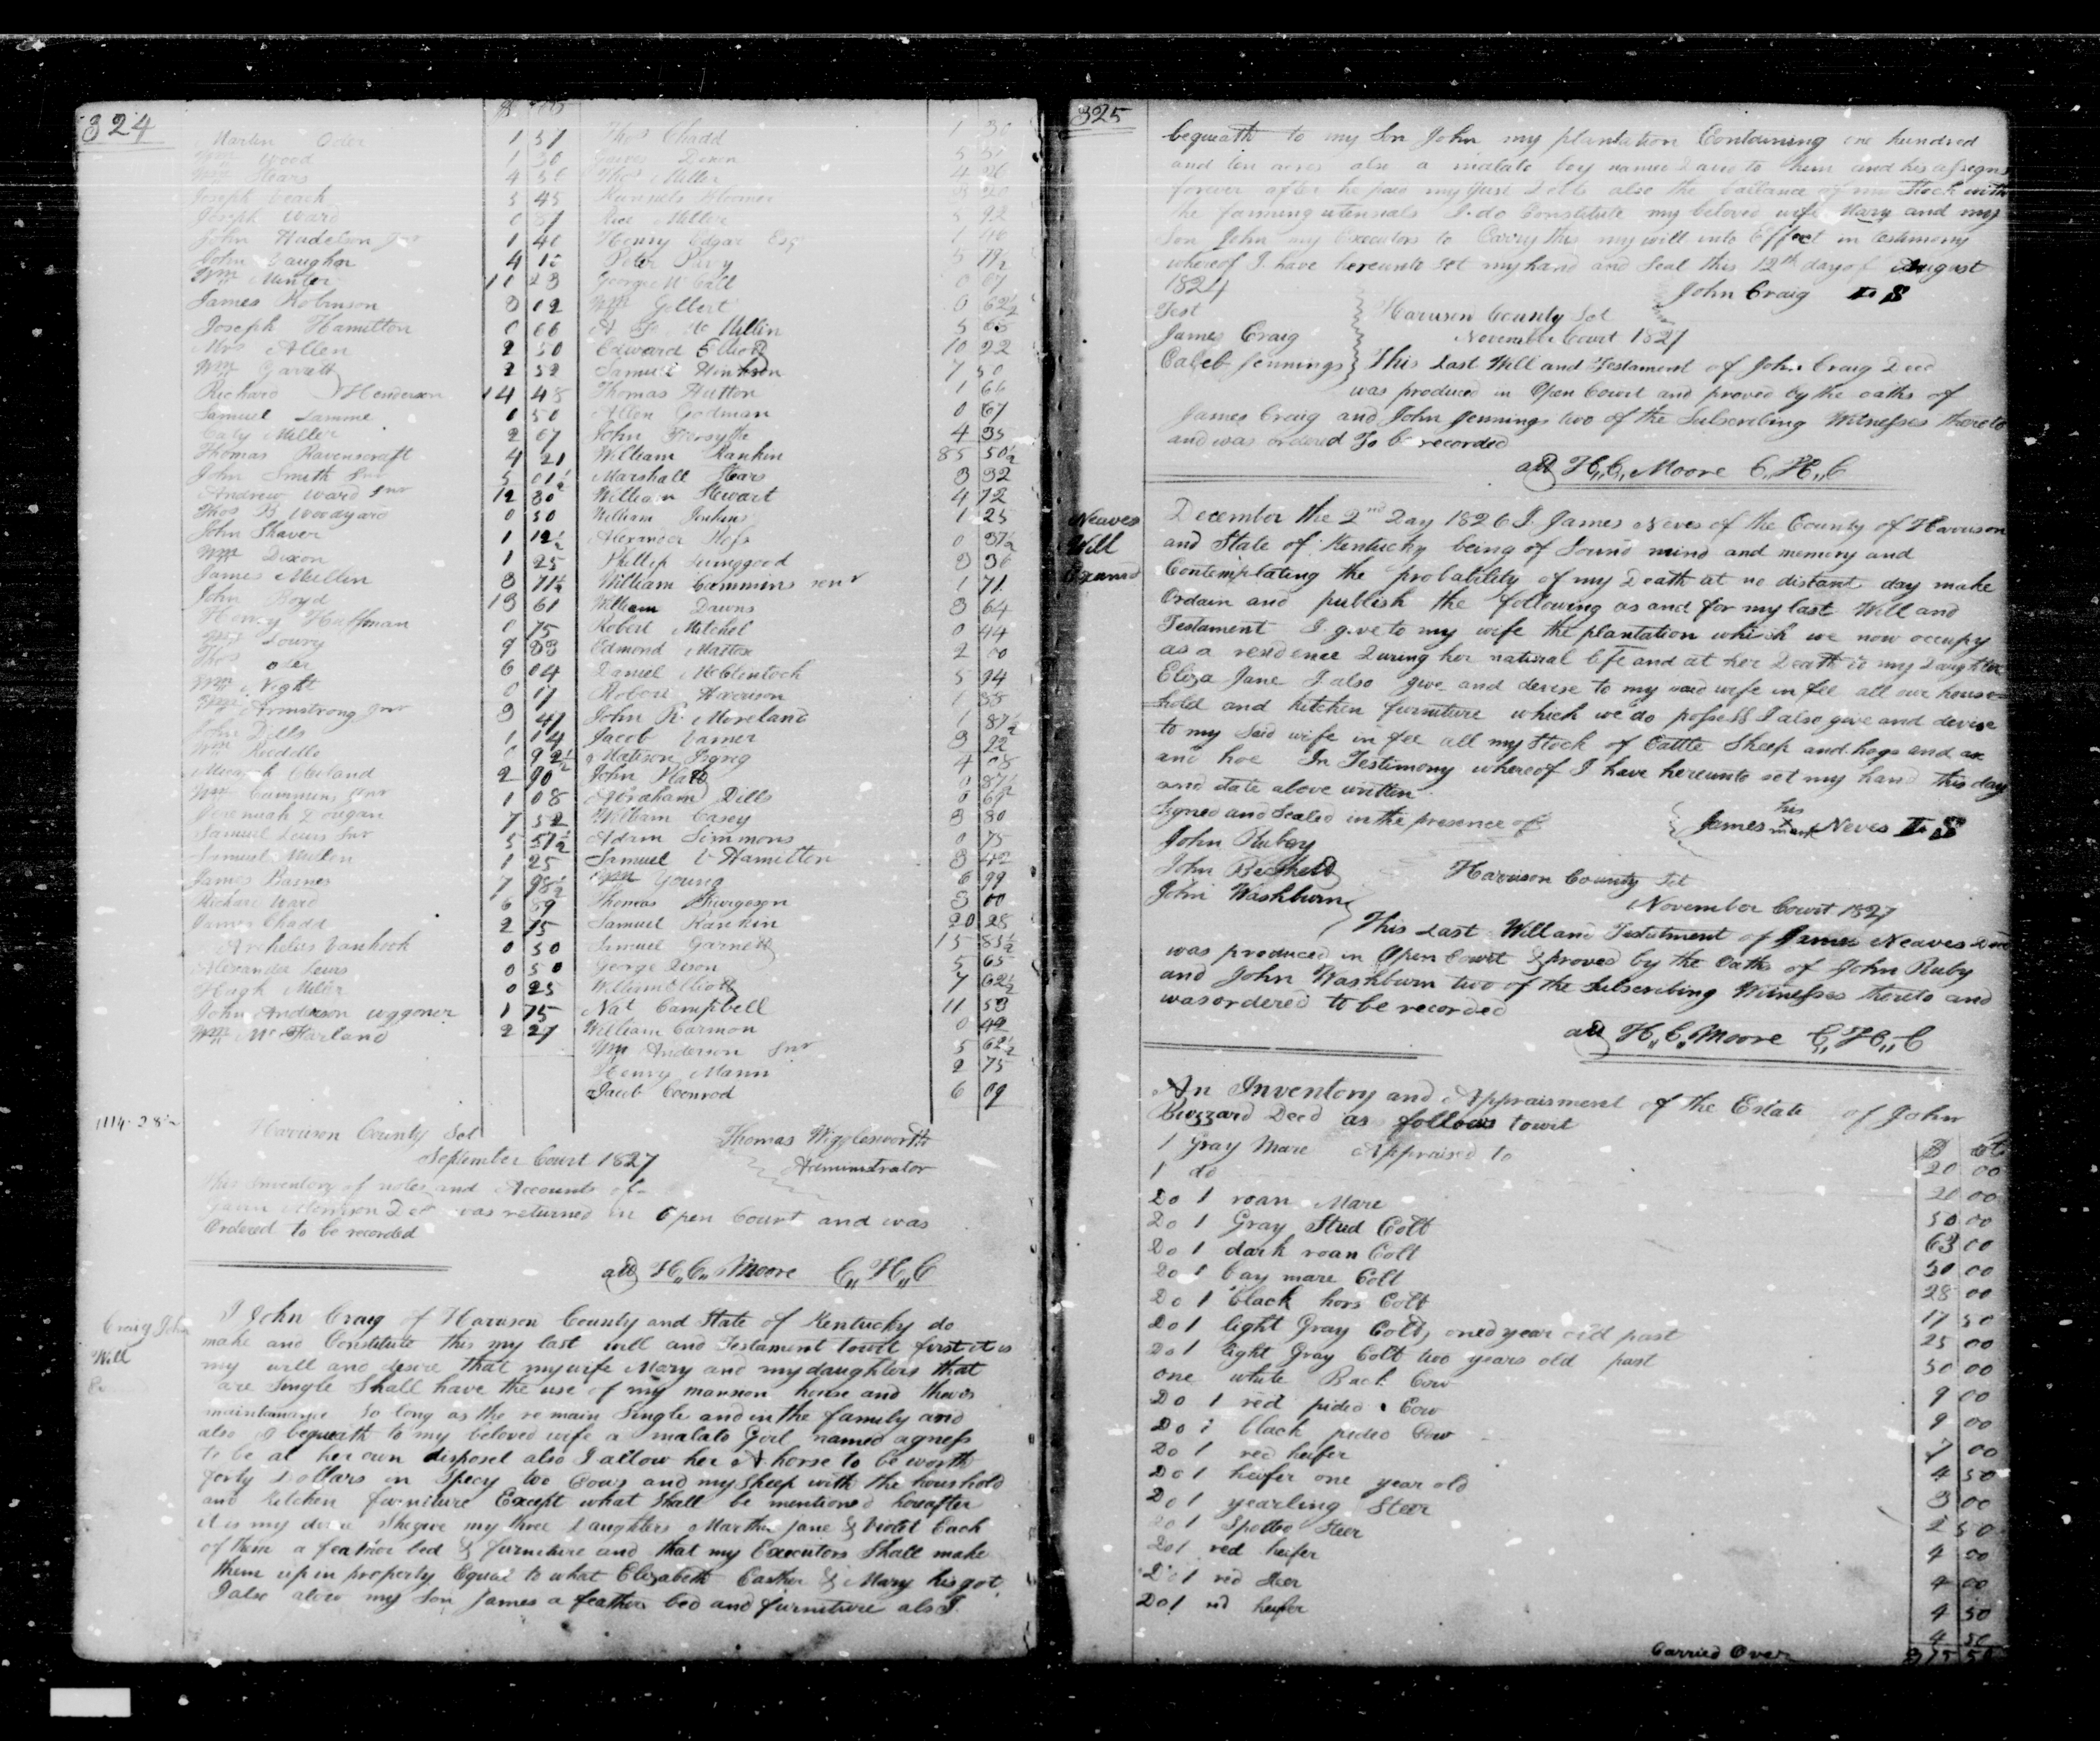 324
Martin Oder 1 37
Wm Wood 1 30
Wm Hears 4
Joseph Veach 5 45
Joseph Ward 0 87
John Hudelson Jnr 1 40
John Vaughn 4
Wm Minter
James Robinson 3 12
Joseph Hamilton 0 66
Mrs Allen 2 50
Wm Garett 2 52
Richard Henderson 14 48
Samuel Lamme 0 50
Caty Miller 2 07
Thomas Ravenscraft 4 21
John Smith Snr 5 01½
Andrew Ward Snr 12 80
Thos B Woodyard 0 50
John Shaver 1 12½
Wm Dixon 1 25
James Mullin 3 71½
John Boyd 13 61
Henry Huffman 0 75
Lowry 9 83
Thos Oder 6 04
Wm Night 0 17
Wm Armstrong Jnr 3 41
John Dills 1 14
Wm Reddello 92½
Cleveland 2 90
Wm Cummins Jnr 1 08
Jeremiah Dougan 7 52
Samuel Lewis Snr 5 57½
Samuel Mullen 1 25
James Barnes 7 98½
Richard Ward 6 89
James Chadd 2 75
Archelus Vanhook 0 50
Alexander Lewis 0 50
Hugh Miller 0 25
John Anderson waggoner 1 75
Wm McFarland 2 27
Thos Chadd 1 30
Dixon
Thos Miller
Miller 5 92
Henry Edgar Esqr
Peter Pary
George McCall 0 67
Wm Gilbert 0 62½
5 65
Edward Elliott 10 22
Samuel Hinkson 7 50
Thomas Hutton 1 66
Allen Godman 0 67
John Forsythe 4 35
William Rankin 85 50½
Marshall Hears 3 32
William Stewart 4 72
William Jenkins 1 25
Alexander 0 37½
Phillip 3 36
William Cummins senr 1 71
William Dawns 3 64
Robert Mitchel 0 44
Edmond 2 00
Daniel McClintock 5 94
Robert Harrison 1 35
John R. Moreland 1 87½
Jacob 3 22
4 08
John 0 87½
Abraham Dills 0 69
William Casey 3 80
Adam Simmons 0 75
Samuel Hamilton 3 42
Wm Young 6 99
Thomas Furgeson 3 00
Samuel Rankin 20 28
Samuel Garnett 15 83½
George 5 65
William Elliott 7 62½
Nat Campbell 11 53
William Carmon 0 49
Wm Anderson Snr 5 62½
Henry Mann 2 75
Jacob Coonrod 6 09
Harrison County Sct
Thomas Wigglesworth
September Court 1827
Administrator
This Inventory of notes and Accounts of
Morrison Decd was returned in Open Court and was
Ordered to be recorded
att H,,C,, Moore C,,H,,C
Craig John
Will
I John Craig of Harrison County and State of Kentucky do
make and Constitute this my last will and Testament towit first it is
my will and desire that my wife Mary and my daughters that
are Single Shall have the use of my mansion house and
maintanance so long as the remain Single and in the family and
also I bequeath to my beloved wife a malato Girl named agness
to be at her own disposel also I allow her A horse to be worth
forty Dollars in Specy two Cows and my Sheep with the houshold
and kitchen furniture Except what Shall be mentioned hereafter
it is my desire She give my three Daughters Martha Jane & Violet Each
of them a feather bed & furniture and that my Executors Shall make
them up in property Equal to what Elizabeth Easther & Mary his got
I also alow my Son James a feather bed and furniture also I
325
bequeath to my Son John my plantation Containing one hundred
and ten acres also a malato boy named to him and his assigns
forever after he paid my Just Debts also the ballance of my Stock with
the farming utensials I do Constitute my beloved wife Mary and my
Son John my Executors to Carry this my will into Effect in testimony
whereof I have hereunto set my hand and Seal this 12th day of August
1824
John Craig
Test
Harrison County Sct
James Craig
November Court 1827
Caleb Jennings This Last Will and Testament of John Craig Decd
was produced in Open Court and proved by the oaths of
James Craig and John Jennings two of the Subscribing Witnesses thereto
and was ordered To be recorded
att H,,C,, Moore C,,H,,C
Neaves
Will
Examd
December the 2nd Day 1826 I James Neves of the County of Harrison
and State of Kentucky being of Sound mind and memory and
Contemplating the probability of my Death at no distant day make
Ordain and publish the following as and for my last Will and
Testament I give to my wife the plantation which we now occupy
as a residence During her natural life and at her Death to my Daughter
Eliza Jane I also give and devise to my said wife in fee all our house=
hold and kitchen furniture which we do possess I also give and devise
to my Said wife in fee all my Stock of Cattle Sheep and hogs and ax
and hoe In Testimony whereof I have hereunto set my hand this day
and date above written
Signed and Sealed in the presence of
James his mark Neves
John Rubey
John
Harrison County Sct
John Washburn
November Court 1827
This Last Will and Testament of James Neaves Decd
was produced in Open Court & proved by the Oaths of John Ruby
and John Washburn two of the Subscribing Witnesses thereto and
was ordered to be recorded
att H,,C,, Moore C,,H,,C
An Inventory and Appraisment of the Estate of John
Buzzard Decd as follows towit
1 Gray Mare Appraised to 20 00
1 do 20 00
Do 1 roan Mare 50 00
Do 1 Gray Stud Colt 63 00
Do 1 dark roan Colt 30 00
Do 1 bay mare Colt 28 00
Do 1 black hors Colt 17 50
Do 1 light Gray Colt, oned year old past 25 00
Do 1 light Gray Colt two years old past 50 00
one white Back Cow 9 00
Do 1 red pided Cow 9 00
Do 1 black pided Cow 7 00
Do 1 red heifer 4 50
Do 1 heifer one year old 3 00
Do 1 yearling Steer 2 50
Do 1 Spotted Steer 4 00
Do 1 red heifer 4 00
Do 1 red Steer 4 50
Do 1 red heifer 4 50
Carried Over